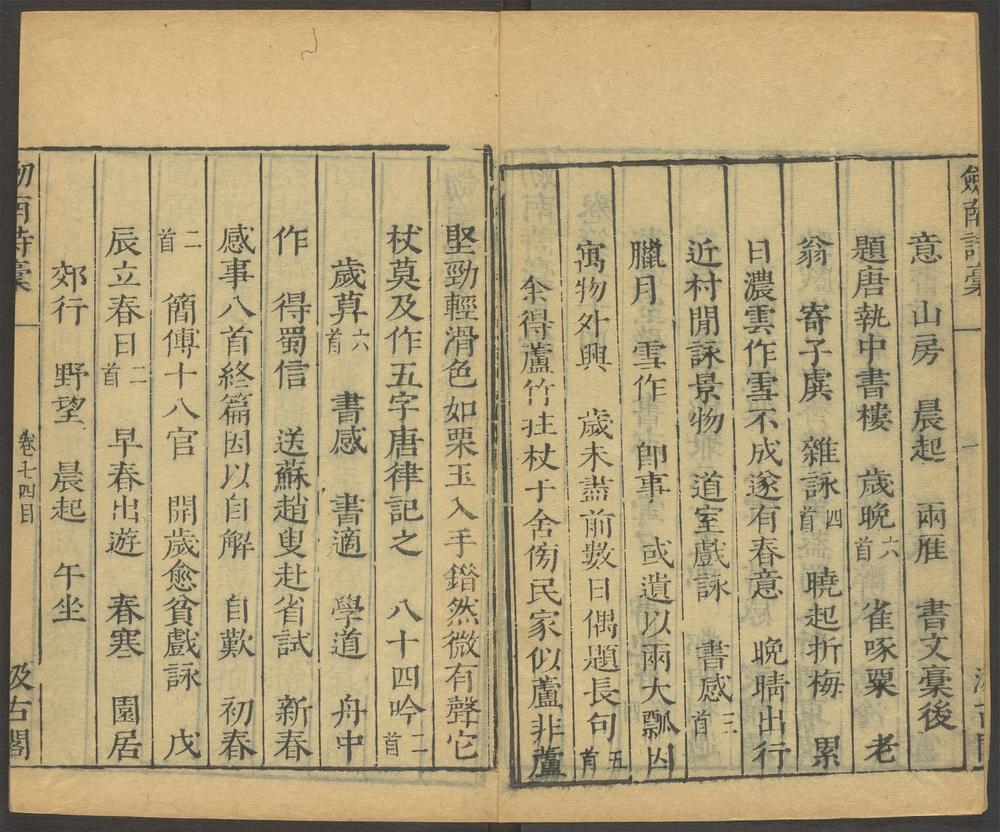 劍南詩稾
意　山房　晨起　兩雁　書文稾後
題唐執中書樓　歲晚六首　雀啄粟　老
翁　寄子虡　雜詠四首　曉起折梅　累
日濃雲作雪不成遂有春意　晚晴出行
近村閒詠景物　道室戲詠　書感三首
臘月　雪作　卽事　或遺以兩大瓢因
寓物外興　歲未盡前數日偶題長句五首
余得蘆竹拄杖于舍傍民家似蘆非蘆
堅勁輕滑色如栗玉入手鏘然微有聲它
杖莫及作五字唐律記之　八十四吟二首
歲暮六首　書感　書適　學道　舟中
作　得蜀信　送蘇趙叟赴省試　新春
感事八首終篇因以自解　自歎　初春
二首　簡傅十八官　開歲愈貧戲詠　戊
辰立春日二首　早春出遊　春寒　園居
郊行　野望　晨起　午坐
劍南詩稾
卷七十四目
汲古閣